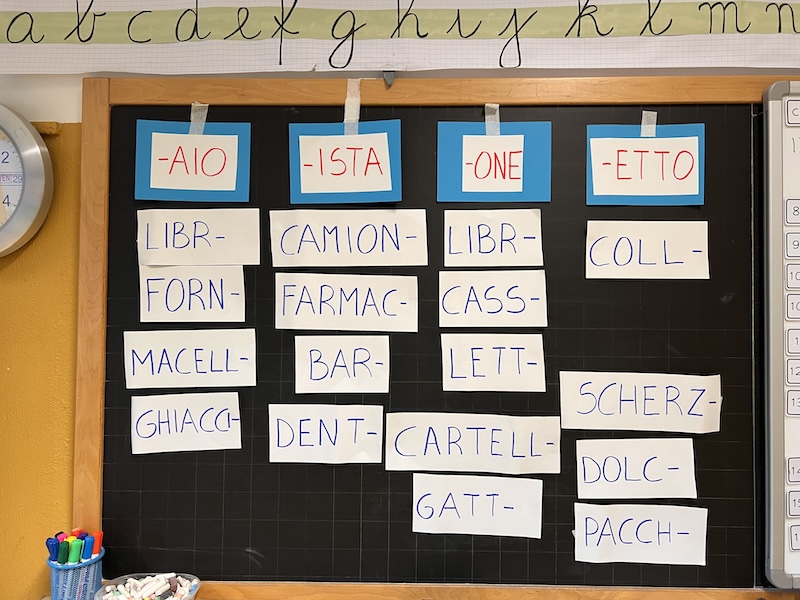 a b c d e f g h i j k l m n
-AIO
LIBR-
FORN-
MACELL-
GHIACCI-
-ISTA
CAMION-
FARMAC-
BAR-
DENT-
-ONE
LIBR-
CASS-
LETT-
CARTELL-
GATT-
-ETTO
COLL-
SCHERZ-
DOLC-
PACCH-
2
4
8
9
10
10
11
12
13